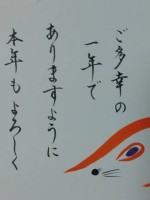 ご多幸の
一年で
ありますように
本年もよろしく